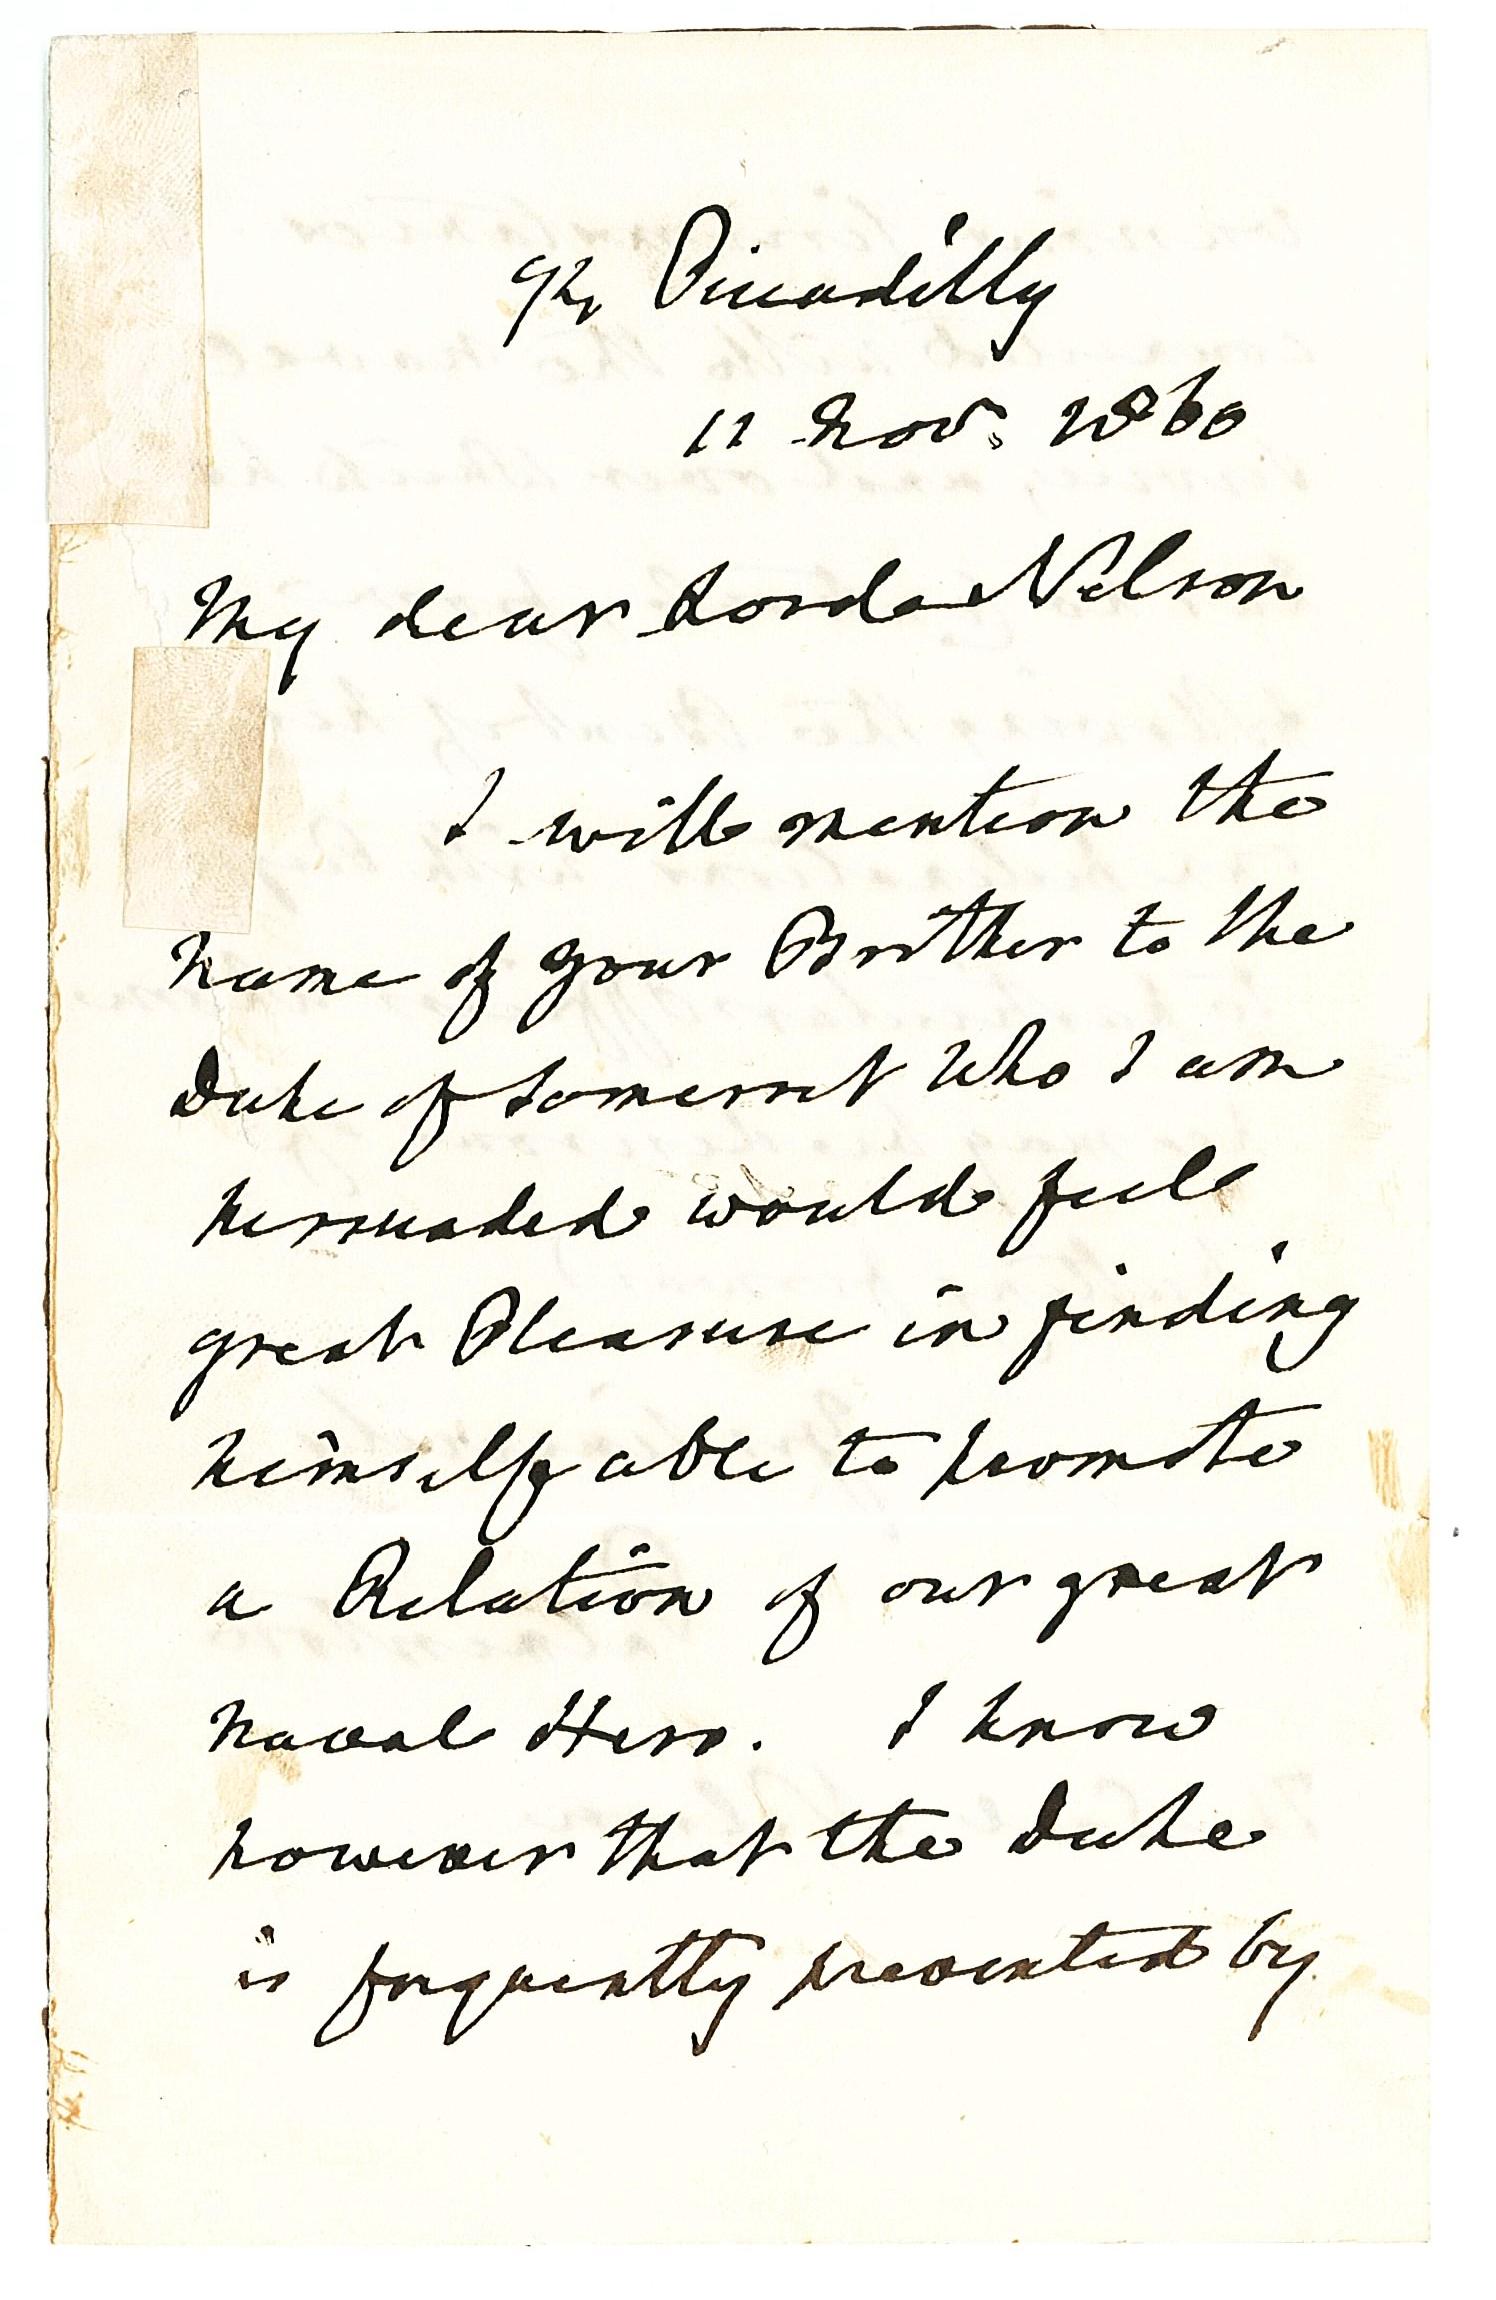 94, Piccadilly
11 Nov: 1860
My dear Lord Nelson
I will mention the
name of your Brother to the
Duke of Somerset who I am
persuaded would feel
great Pleasure in finding
himself able to promote
a Relation of our great
Naval Hero. I know
however that the Duke
is frequently prevented by